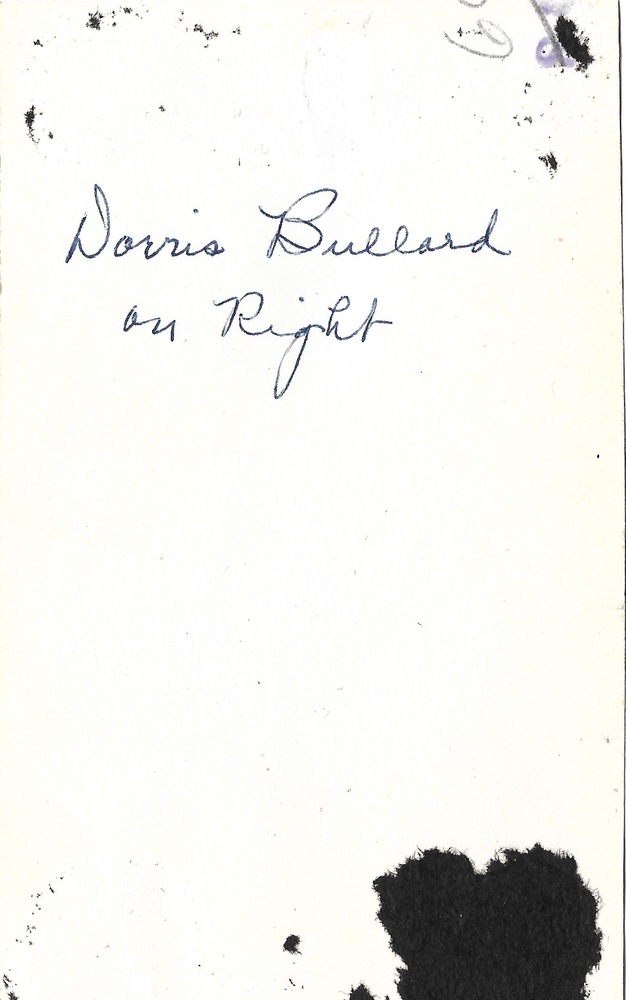 Dorris Bullard
on Right